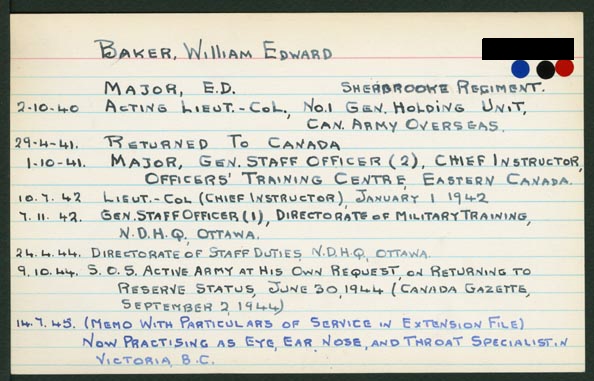 BAKER, WILLIAM EDWARD
MAJOR, E.D. SHERBROOKE REGIMENT.
2-10-40 ACTING LIEUT.-COL., NO.1 GEN. HOLDING UNIT,
CAN. ARMY OVERSEAS.
29-4-41. RETURNED TO CANADA
1-10-41. MAJOR, GEN. STAFF OFFICER (2), CHIEF INSTRUCTOR,
OFFICERS' TRAINING CENTRE, EASTERN CANADA.
10.7.42 LIEUT.-COL (CHIEF INSTRUCTOR), JANUARY 1 1942
7.11.42. GEN. STAFF OFFICER (1), DIRECTORATE OF MILITARY TRAINING,
N.D.H.Q., OTTAWA.
24.4.44. DIRECTORATE OF STAFF DUTIES, N.D.H.Q., OTTAWA.
9.10.44. S.O.S. ACTIVE ARMY AT HIS OWN REQUEST, ON RETURNING TO
RESERVE STATUS, JUNE 30, 1944 (CANADA GAZETTE,
SEPTEMBER 2, 1944)
14.7.45. (MEMO WITH PARTICULARS OF SERVICE IN EXTENSION FILE)
NOW PRACTISING AS EYE, EAR, NOSE, AND THROAT SPECIALIST IN
VICTORIA, B.C.